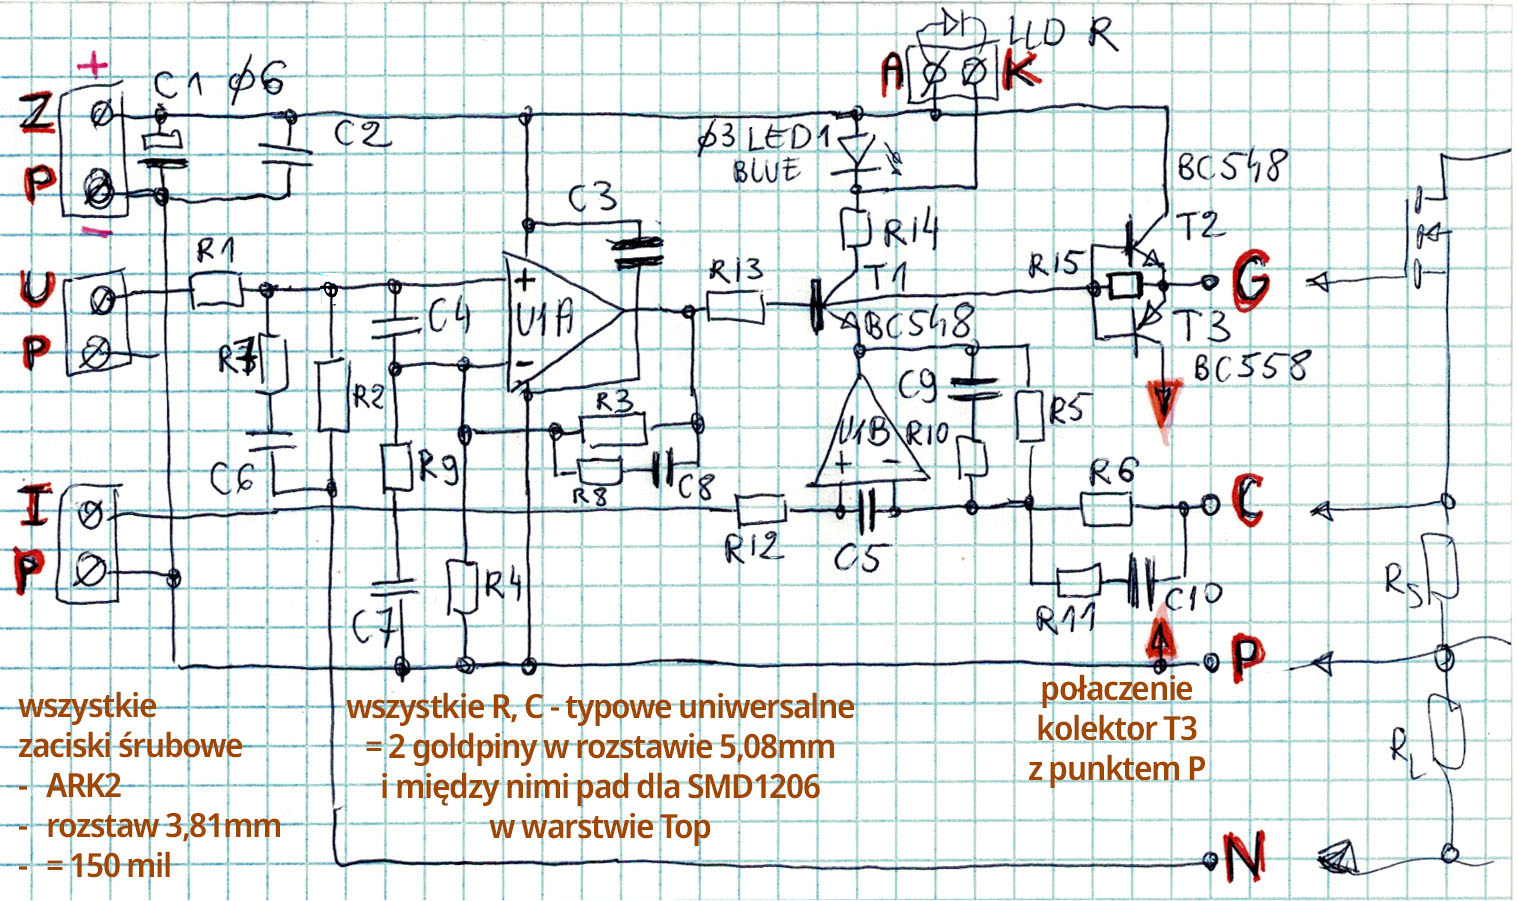 +
Z
P
−
C1 ø6
C2
U
P
R1
R7
C6
R2
I
P
C4
R9
C7
+
U1A
-
C3
R3
R8
C8
R4
R13
ø3 LED1
BLUE
A
K
LED R
R14
T1
BC548
U1B
+ -
C9
R10
R5
R12
C5
R6
R11
C10
R15
BC548
T2
T3
BC558
G
C
P
N
RS
RL
wszystkie
zaciski śrubowe
- ARK2
- rozstaw 3,81mm
- = 150 mil
wszystkie R, C - typowe uniwersalne
= 2 goldpiny w rozstawie 5,08mm
i między nimi pad dla SMD1206
w warstwie Top
połaczenie
kolektor T3
z punktem P